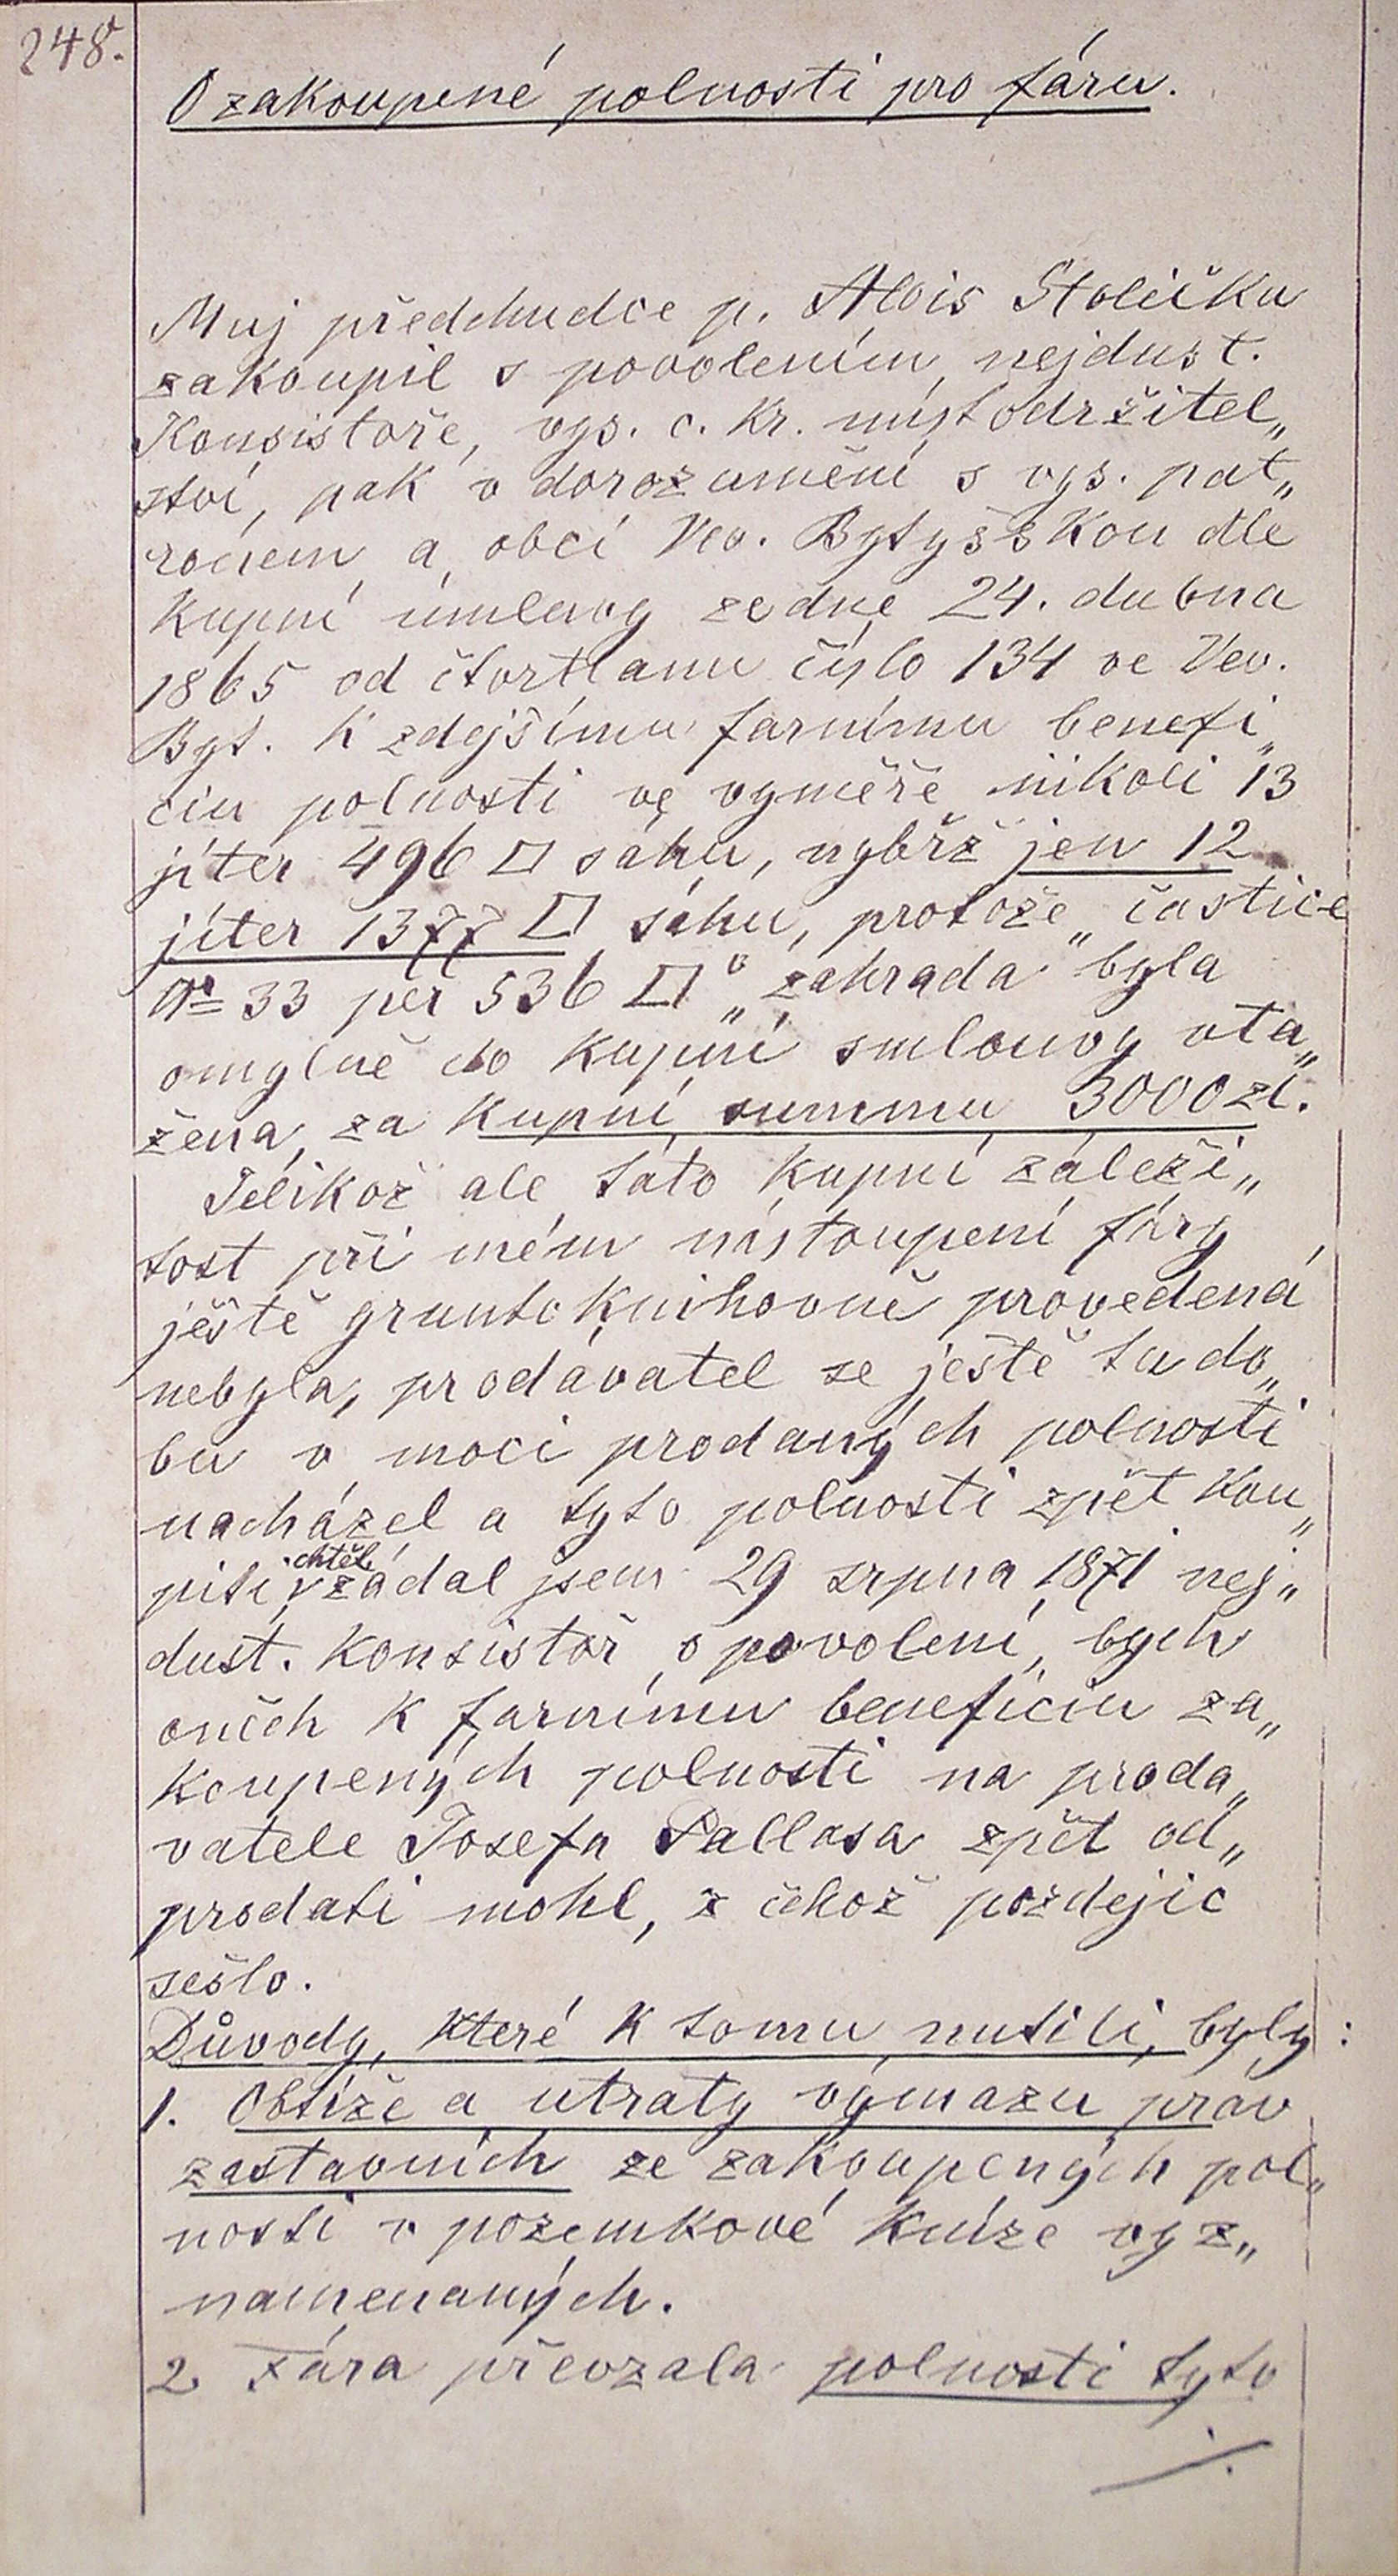 248.
O zakoupené polnosti pro fáru.
Muj předchudce p. Alois Stolička
zakoupil s povolením nejdust.
Konsistoře, vys. c. kr. místodržitel„
ství, pak v dorozumění s vys. pat„
ronem a obcí Vev. Bytyšskou dle
kupní úmluvy ze dne 24. dubna
1865 od čtvrtlanu číslo 134 ve Vev.
Byt. k zdejšímu farnímu benefi„
ciu polnosti ve vyměře nikoli 13
jiter 496 □ sáhu, nybřž jen 12
jiter 1377 □ sáhu, protože „častice
No 33 per 536 □° „zahrada“ byla
omylně do kupní smlouvy vta„
žena, za kupní summu 3000 zl.
Jelikož ale tato kupní záleži„
tost při mém nastoupení fáry
ještě gruntoknihovně provedená
nebyla, prodávatel se ještě tu do„
bu v moci prodaných polností
nacházel a tyto polnosti zpět kou„
piti chtěl, žádal jsem 29 srpna 1871 nej„
dust. konsistoř o povolení, bych
oněch k farnímu beneficiu za„
koupených polností na proda„
vatele Josefa Pallasa zpět od„
prodati mohl, z čehož pozdejic
sešlo.
Důvody, které k tomu nutili, byly:
1. Obtíže a útraty výmazu práv
zastavních ze zakoupených pol„
ností v pozemkové knize vyz„
namenaných.
2. Fára převzala polnosti tyto
./.